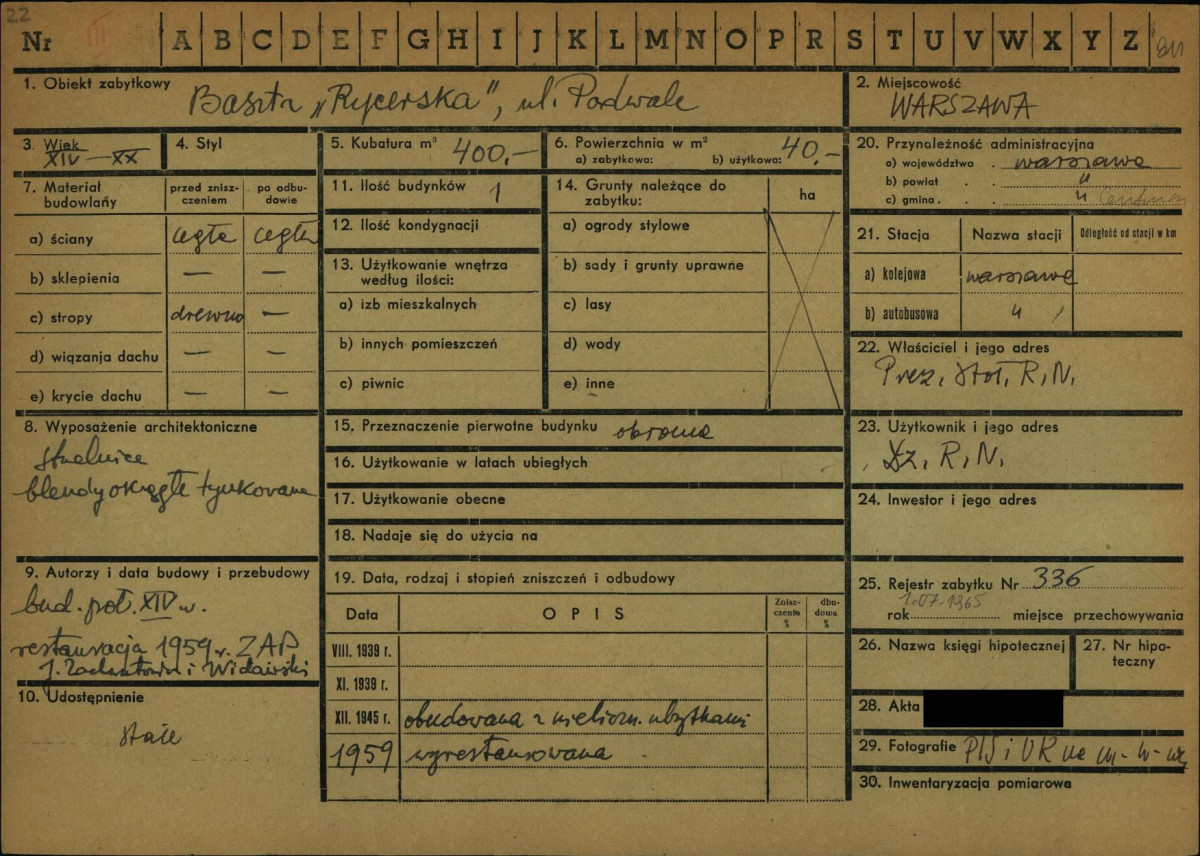 22
Nr III A B C D E F G H I J K L M N O P R S T U V W X Y Z
1. Obiekt zabytkowy Baszta „Rycerska", ul. Podwale
2. Miejscowość
WARSZAWA
3. Wiek
XIV – XX
4. Styl
5. Kubatura m³ 400.–
6. Powierzchnia w m²
a) zabytkowa: b) użytkowa: 40.–
7. Materiał budowlany
przed zniszczeniem
po odbudowie
a) ściany cegła cegła
b) sklepienia — —
c) stropy drewno —
d) wiązania dachu — —
e) krycie dachu — —
8. Wyposażenie architektoniczne
strzelnice
blendy okrągłe tynkowane
9. Autorzy i data budowy i przebudowy
bud. poł. XIV w.
restauracja 1959 r. ZAP
J. Zachwatowicz i Widawski
10. Udostępnienie
stałe
11. Ilość budynków 1
12. Ilość kondygnacji
13. Użytkowanie wnętrza
według ilości:
a) izb mieszkalnych
b) innych pomieszczeń
c) piwnic
14. Grunty należące do
zabytku:
ha
a) ogrody stylowe
b) sady i grunty uprawne
c) lasy
d) wody
e) inne
15. Przeznaczenie pierwotne budynku obronne
16. Użytkowanie w latach ubiegłych
17. Użytkowanie obecne
18. Nadaje się do użycia na
19. Data, rodzaj i stopień zniszczeń i odbudowy
Data OPIS Zniszczenia % dbudowa %
VIII. 1939 r.
XI. 1939 r.
XII. 1945 r. obudowana z nieliczn. ubytkami
1959 wyrestaurowana
20. Przynależność administracyjna
a) województwo . warszawa
b) powiat . . "
c) gmina . . . "
21. Stacja Nazwa stacji Odległość od stacji w km
a) kolejowa warszawa
b) autobusowa "
22. Właściciel i jego adres
Prez. Stoł. R.N.
23. Użytkownik i jego adres
Dz. R.N.
24. Inwestor i jego adres
25. Rejestr zabytku Nr 336
1.07.1965
rok miejsce przechowywania
26. Nazwa księgi hipotecznej
27. Nr hipoteczny
28. Akta
29. Fotografie PIS i UR na m-
30. Inwentaryzacja pomiarowa